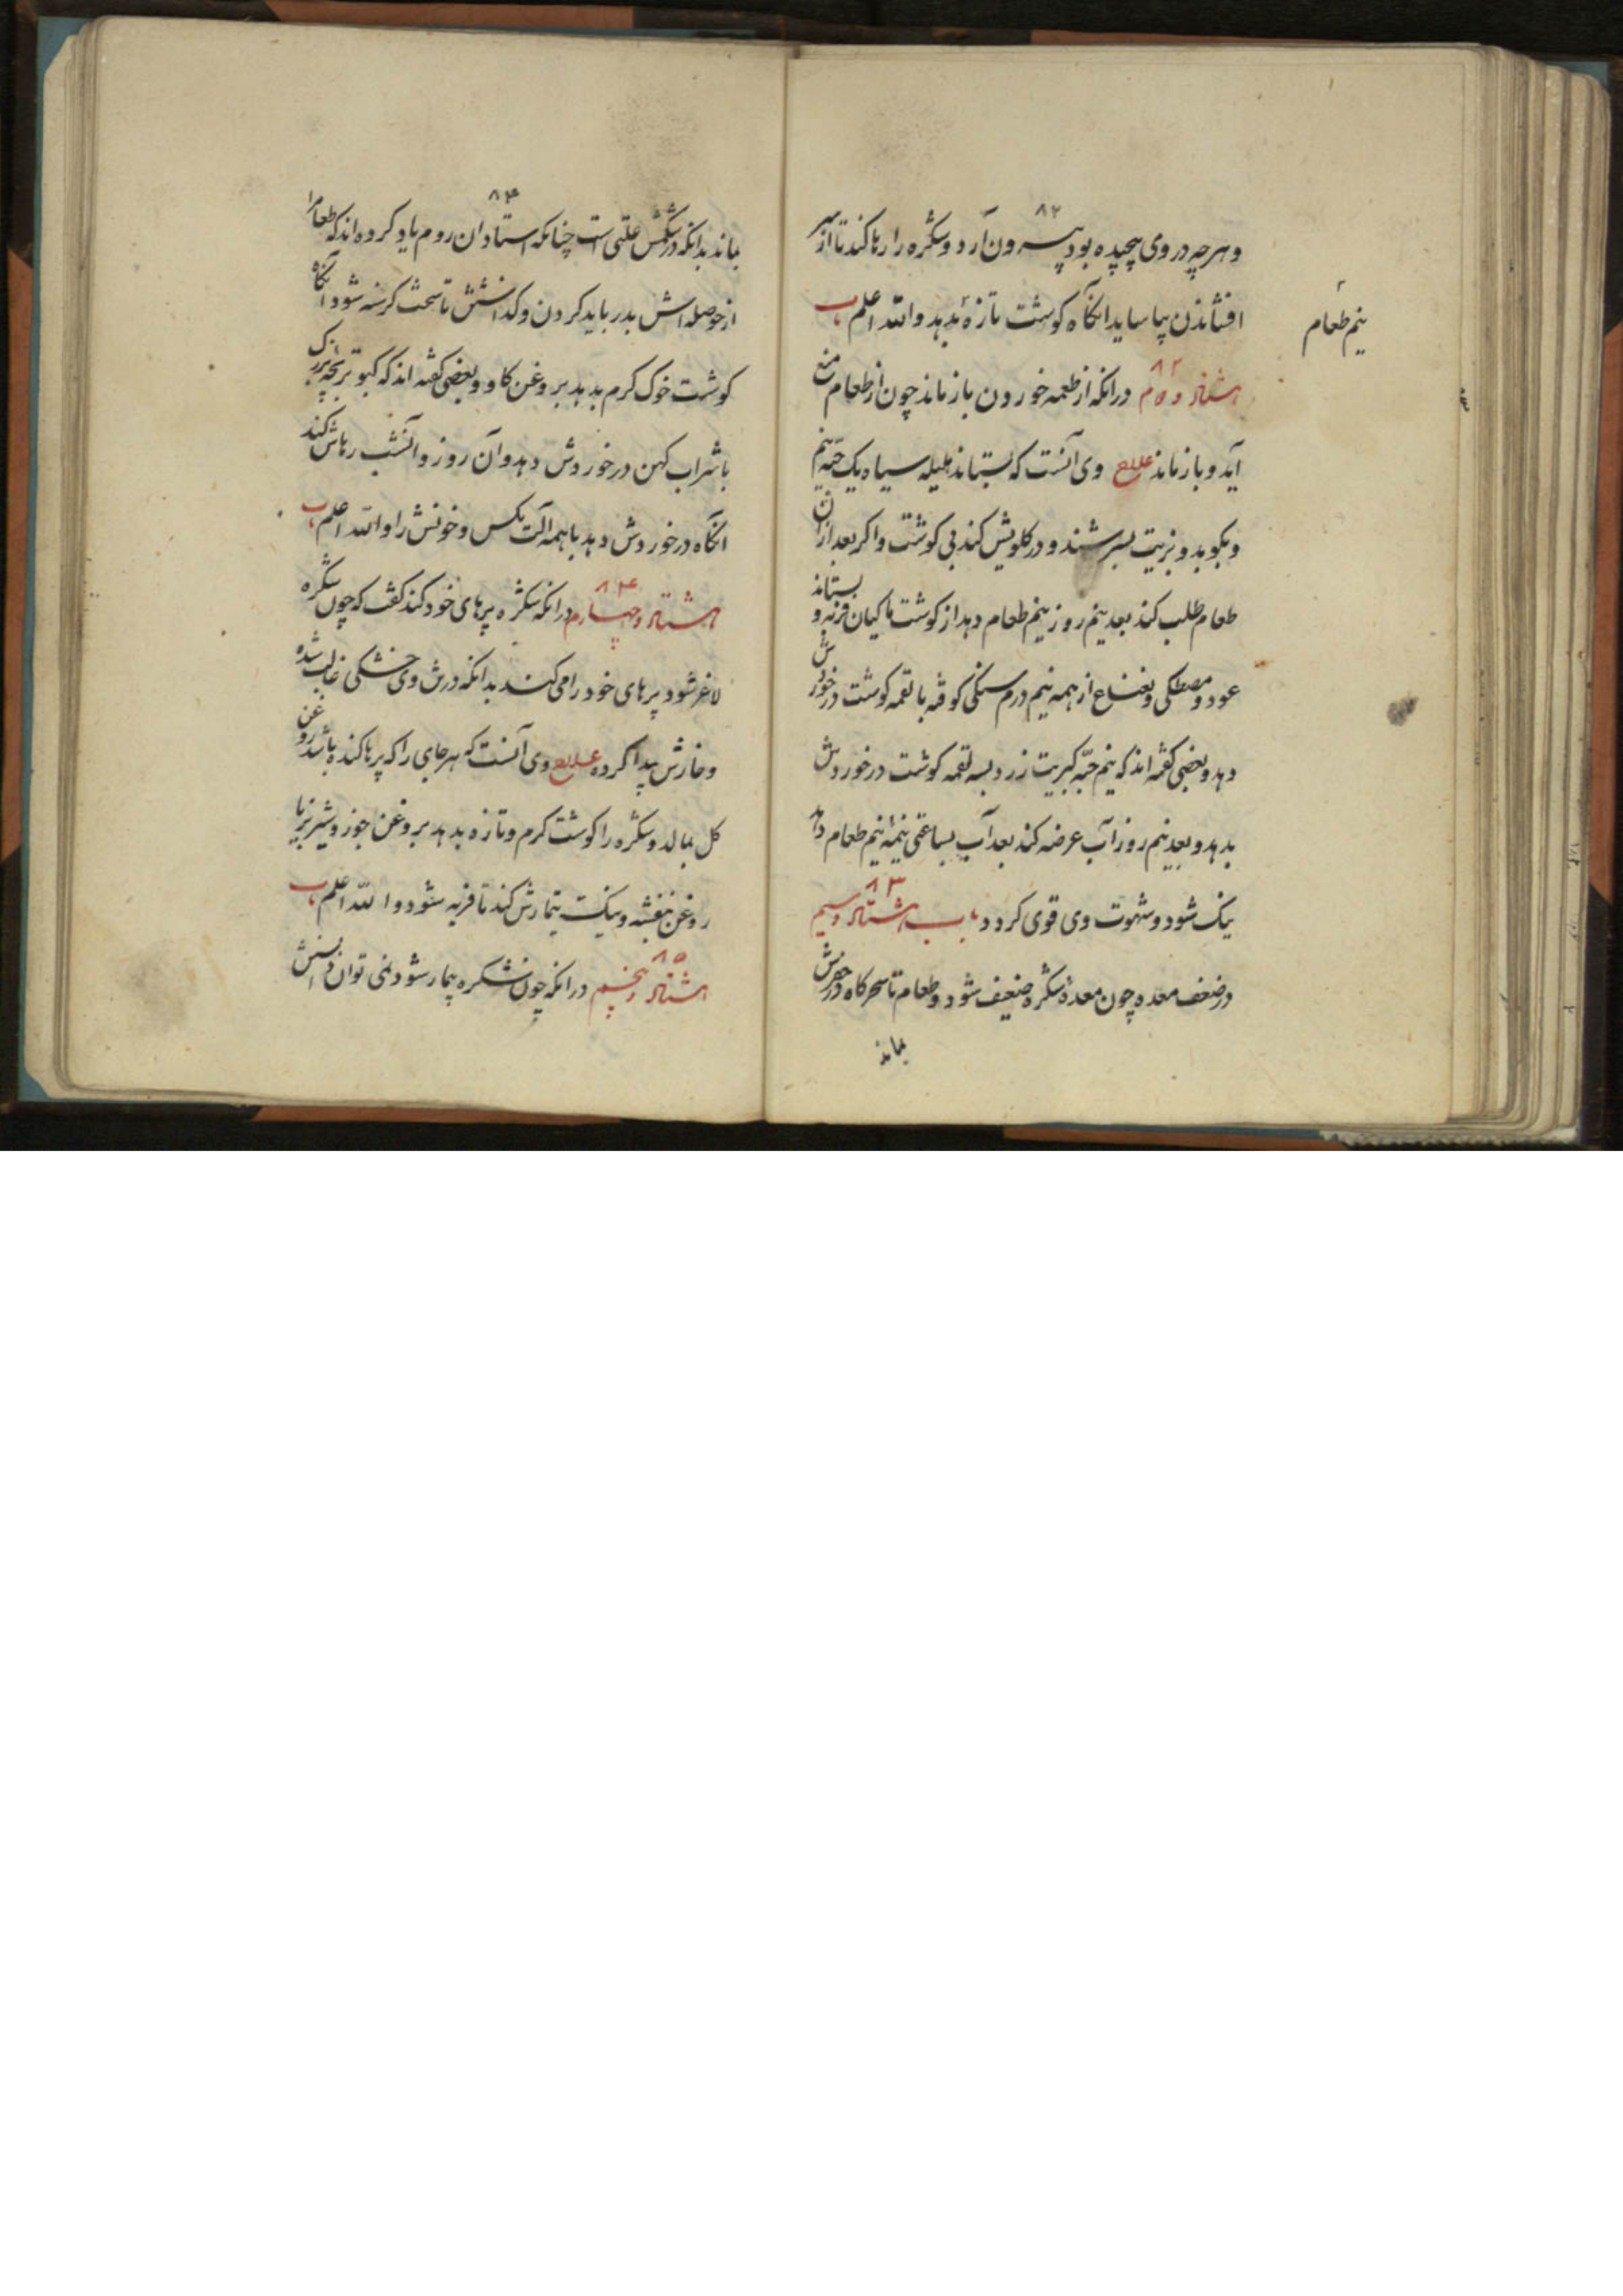 ۸۲
وهرچه در وی پیچیده بود بیرون آرد و شکره را رها کند تا از پر
افشاندن بیاساید انگاه کوشت تازهٔ بدهد والله اعلم باب
۸۲
هشتاد و دوم درانکه از طعمه خوردن باز ماند چون از طعام منع
نیم طعام
آید و باز ماند علاج وی آنست که بستاند هلیله سیاه یک حبّه نیم
و بکوبد و بزیت بسرشند و در کلویش کند بی کوشت و اکر بعد ازان
طعام طلب کند بعد نیم روز نیم طعام دهد از کوشت ماکیان فربه و بستاند
عود و مصطکی و نعناع از همه نیم درم سنکی کوفته با لقمه کوشت در خوردش
دهد و بعضی کفته اند که نیم حبّه کبریت زرد بسه لقمه کوشت در خوردش
بدهد و بعد نیم روز آب عرضه کند بعد آب بساعتی نیمهٔ نیم طعام دهد
نیک شود و شهوت وی قوی کردد باب هشتاد وسیم
۸۳
در ضعف معده چون معدهٔ شکره ضعیف شود و طعام تا سحرکاه در حوصلش
بماند
۸۳
بماند بدانکه در شکمش علتی است چنانکه استادان روم یاد کرده اند که طعام را
از حوصله اش بدر باید کردن و کذاشتنش تا سخت کرسنه شود انگاه
کوشت خوک کرم بدهد بروغن کاو و بعضی کفته اند که کبوتر بچه بزرک
با شراب کهن در خوردش دهد و آن روز و آنشب رهاش کند
انگاه در خوردش دهد با همه آلت مکس و خونش را والله اعلم باب
۸۴
هشتاد و چهارم درانکه شکره پرهای خود کند کفت که چون شکره
لاغر شود پرهای خود را می کند بدانکه درش وی خشکی غالب شده
و خارش پیدا کرده علاج وی آنست که هر جای را که پرها کنده باشد روغن
کل بمالد و شکره را کوشت کرم و تازه بدهد بروغن جوز و شیر بز یا
روغن بنفشه و نیک تیمارش کند تا فربه شود والله اعلم باب
۸۵
هشتاد و پنجم درانکه چون شکره بیمار شود نمی توان دانستنش